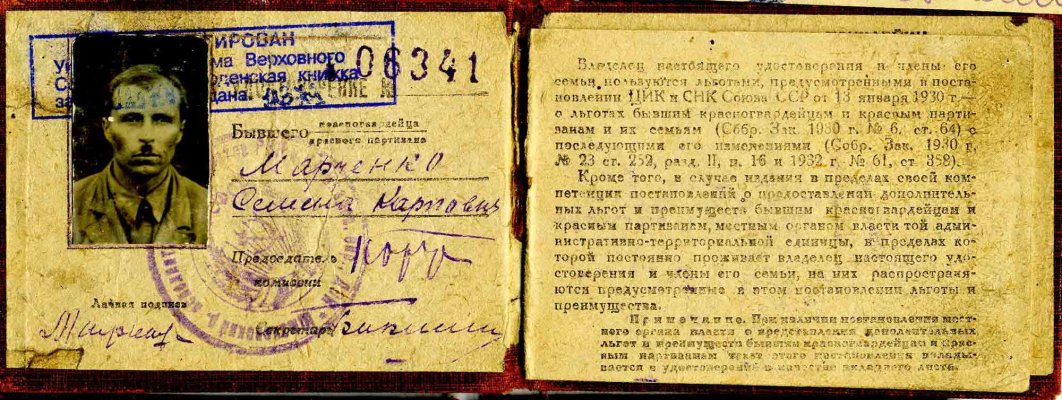 ИРОВАН
ма Верховного
денская книжка
дана.
06341
Бывшего красногвардейца
красного партизана
Марченко
Семена Карповича
Председатель
комиссии
Личная подпись
Секретарь
Владелец настоящего удостоверения и члены его
семьи пользуются льготами, предусмотренными в поста-
новлении ЦИК и СНК Союза ССР от 13 января 1930 г.—
о льготах бывшим красногвардейцам и красным парти-
занам и их семьям (Собр. Зак. 1930 г. № 6, ст. 64) с
последующими его изменениями (Собр. Зак. 1930 г.
№ 23 ст. 252, разд. II, п. 16 и 1932 г. № 61, ст. 358).
Кроме того, в случае издания в пределах своей ком-
петенции постановлений о предоставлении дополнитель-
ных льгот и преимуществ бывшим красногвардейцам и
красным партизанам, местным органом власти той адми-
нистративно-территориальной единицы, в пределах ко-
торой постоянно проживает владелец настоящего удо-
стоверения и члены его семьи, на них распространя-
ются предусмотренные в этом постановлении льготы и
преимущества.
Примечание. При наличии постановления мест-
ного органа власти о представлении дополнительных
льгот и преимуществ бывшим красногвардейцам и крас-
ным партизанам текст этого постановления вклады-
вается в удостоверение в качестве вкладного листа.